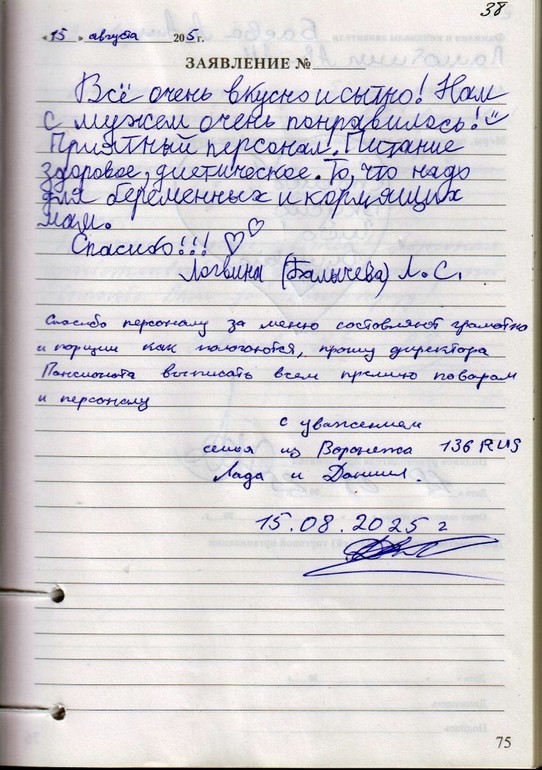 38
«15» августа 2025г.
ЗАЯВЛЕНИЕ №
Всё очень вкусно и сытно! Нам
с мужем очень понравилось!
Приятный персонал. Питание
здоровое, диетическое. То, что надо
для беременных и кормящих
мам.
Спасибо!!!
Логвины (Балычева) Л.С.
Спасибо персоналу за меню состовляют грамотно
и порции как пологаются, прошу директора
Пансионата выписать всем премию поварам
и персоналу
с уважением
семья из Воронежа 136 RUS
Лада и Даниил.
15.08.2025 г
75